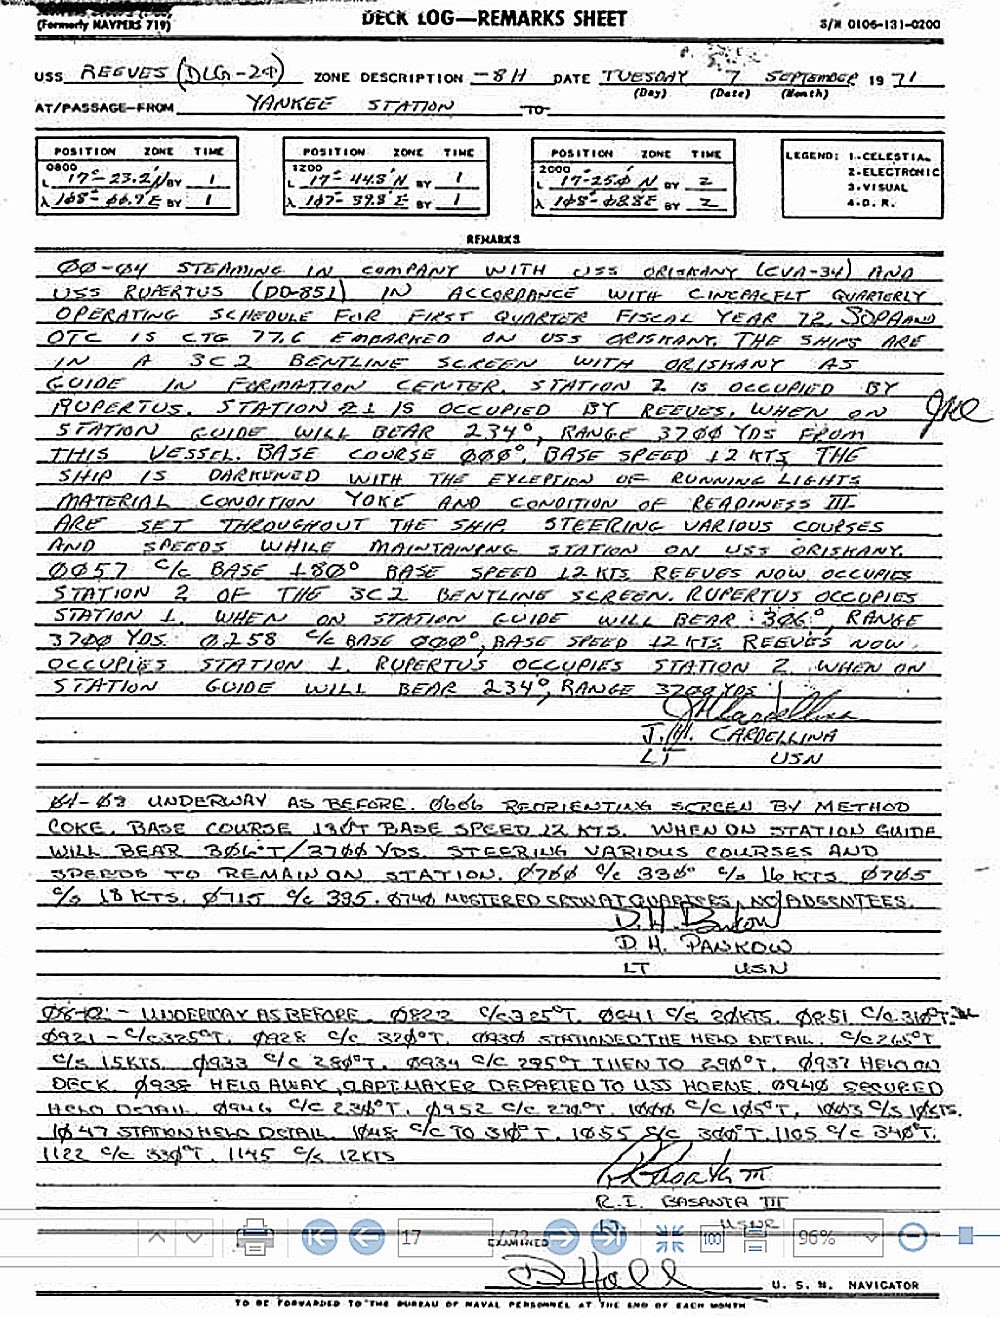 (Formerly NAVPERS 719)
DECK LOG—REMARKS SHEET
S/N 0106-131-0200
USS REEVES (DLG-24) ZONE DESCRIPTION -8H DATE TUESDAY 7 SEPTEMBER 19 71
(Day) (Date) (Month)
AT/PASSAGE-FROM YANKEE STATION TO
POSITION ZONE TIME
0800
L 17°-23.2'N BY 1
λ 108°-06.7'E BY 1
POSITION ZONE TIME
1200
L 17°-44.8'N BY 1
λ 107°-39.8'E BY 1
POSITION ZONE TIME
2000
L 17-25.0 N BY 2
λ 108°-08.8E BY 2
LEGEND: 1-CELESTIAL
2-ELECTRONIC
3-VISUAL
4-D. R.
REMARKS
00-04 STEAMING IN COMPANY WITH USS ORISKANY (CVA-34) AND
USS RUPERTUS (DD-851) IN ACCORDANCE WITH CINCPACFLT QUARTERLY
OPERATING SCHEDULE FOR FIRST QUARTER FISCAL YEAR 72. SOPA AND
OTC IS CTG 77.6 EMBARKED ON USS ORISKANY. THE SHIPS ARE
IN A 3C2 BENTLINE SCREEN WITH ORISKANY AS
GUIDE IN FORMATION CENTER. STATION 2 IS OCCUPIED BY
RUPERTUS. STATION 1 IS OCCUPIED BY REEVES. WHEN ON
STATION GUIDE WILL BEAR 234°, RANGE 3700 YDS FROM
THIS VESSEL. BASE COURSE 000°, BASE SPEED 12 KTS THE
SHIP IS DARKENED WITH THE EXCEPTION OF RUNNING LIGHTS
MATERIAL CONDITION YOKE AND CONDITION OF READINESS III
ARE SET THROUGHOUT THE SHIP. STEERING VARIOUS COURSES
AND SPEEDS WHILE MAINTAINING STATION ON USS ORISKANY.
0057 C/C BASE 180° BASE SPEED 12 KTS REEVES NOW OCCUPIES
STATION 2 OF THE 3C2 BENTLINE SCREEN. RUPERTUS OCCUPIES
STATION 1. WHEN ON STATION GUIDE WILL BEAR 306°, RANGE
3700 YDS. 0258 C/C BASE 000°, BASE SPEED 12 KTS REEVES NOW
OCCUPIES STATION 1. RUPERTUS OCCUPIES STATION 2. WHEN ON
STATION GUIDE WILL BEAR 234°, RANGE 3700 YDS.
J. H. CARDELLINA
LT USN
04-08 UNDERWAY AS BEFORE. 0606 REORIENTING SCREEN BY METHOD
COKE. BASE COURSE 130°T BASE SPEED 12 KTS. WHEN ON STATION GUIDE
WILL BEAR 306°T/3700 YDS. STEERING VARIOUS COURSES AND
SPEEDS TO REMAIN ON STATION. 0700 C/C 330° C/S 16 KTS 0705
C/S 18 KTS. 0715 C/C 335. 0740 MUSTERED CREW AT QUARTERS, NO ABSENTEES.
D. H. PANKOW
LT USN
08-12: - UNDERWAY AS BEFORE. 0822 C/C 325°T. 0841 C/S 20KTS. 0851 C/C 310°T.
0921 - C/C 325°T. 0928 C/C 320°T. 0930 STATIONED THE HELO DETAIL. C/C 265°T
C/S 15KTS. 0933 C/C 280°T. 0934 C/C 295°T THEN TO 290°T. 0937 HELO ON
DECK. 0938 HELO AWAY, CAPT. MAYER DEPARTED TO USS HORNE. 0940 SECURED
HELO DETAIL. 0946 C/C 230°T. 0952 C/C 270°T. 1000 C/C 105°T. 1003 C/S 10KTS.
1047 STATION HELO DETAIL. 1048 C/C TO 310°T. 1055 C/C 300°T. 1105 C/C 340°T.
1122 C/C 330°T. 1145 C/S 12KTS
R. I. BASANTA III
LT USNR
17 / 72 100 96%
EXAMINED
D Hall U. S. N. NAVIGATOR
TO BE FORWARDED TO THE BUREAU OF NAVAL PERSONNEL AT THE END OF EACH MONTH